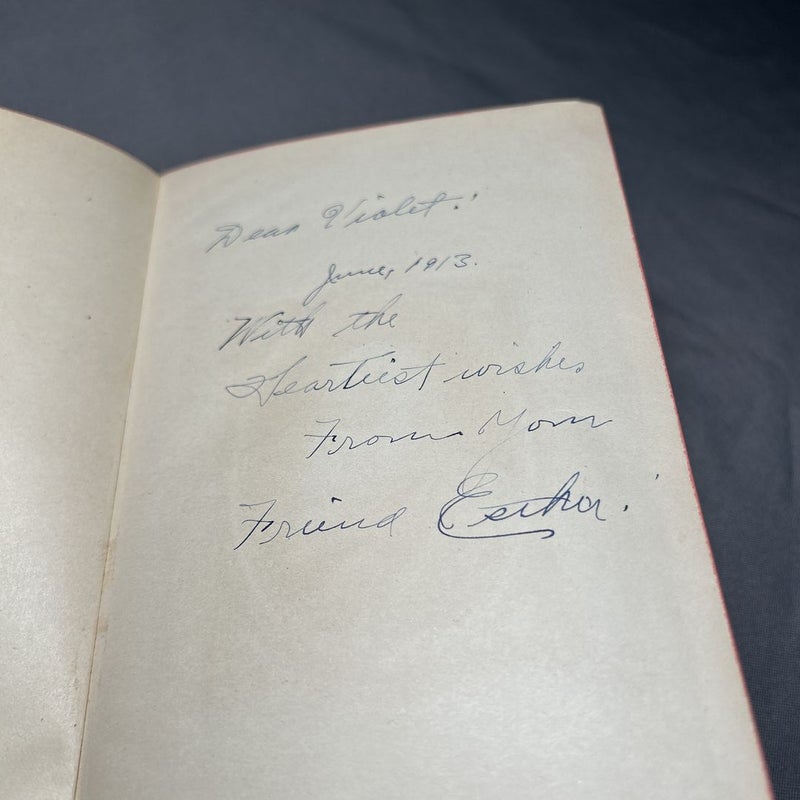 Dear Violet:
June, 1913.
With the
Heartiest wishes
From Your
Friend Esther.